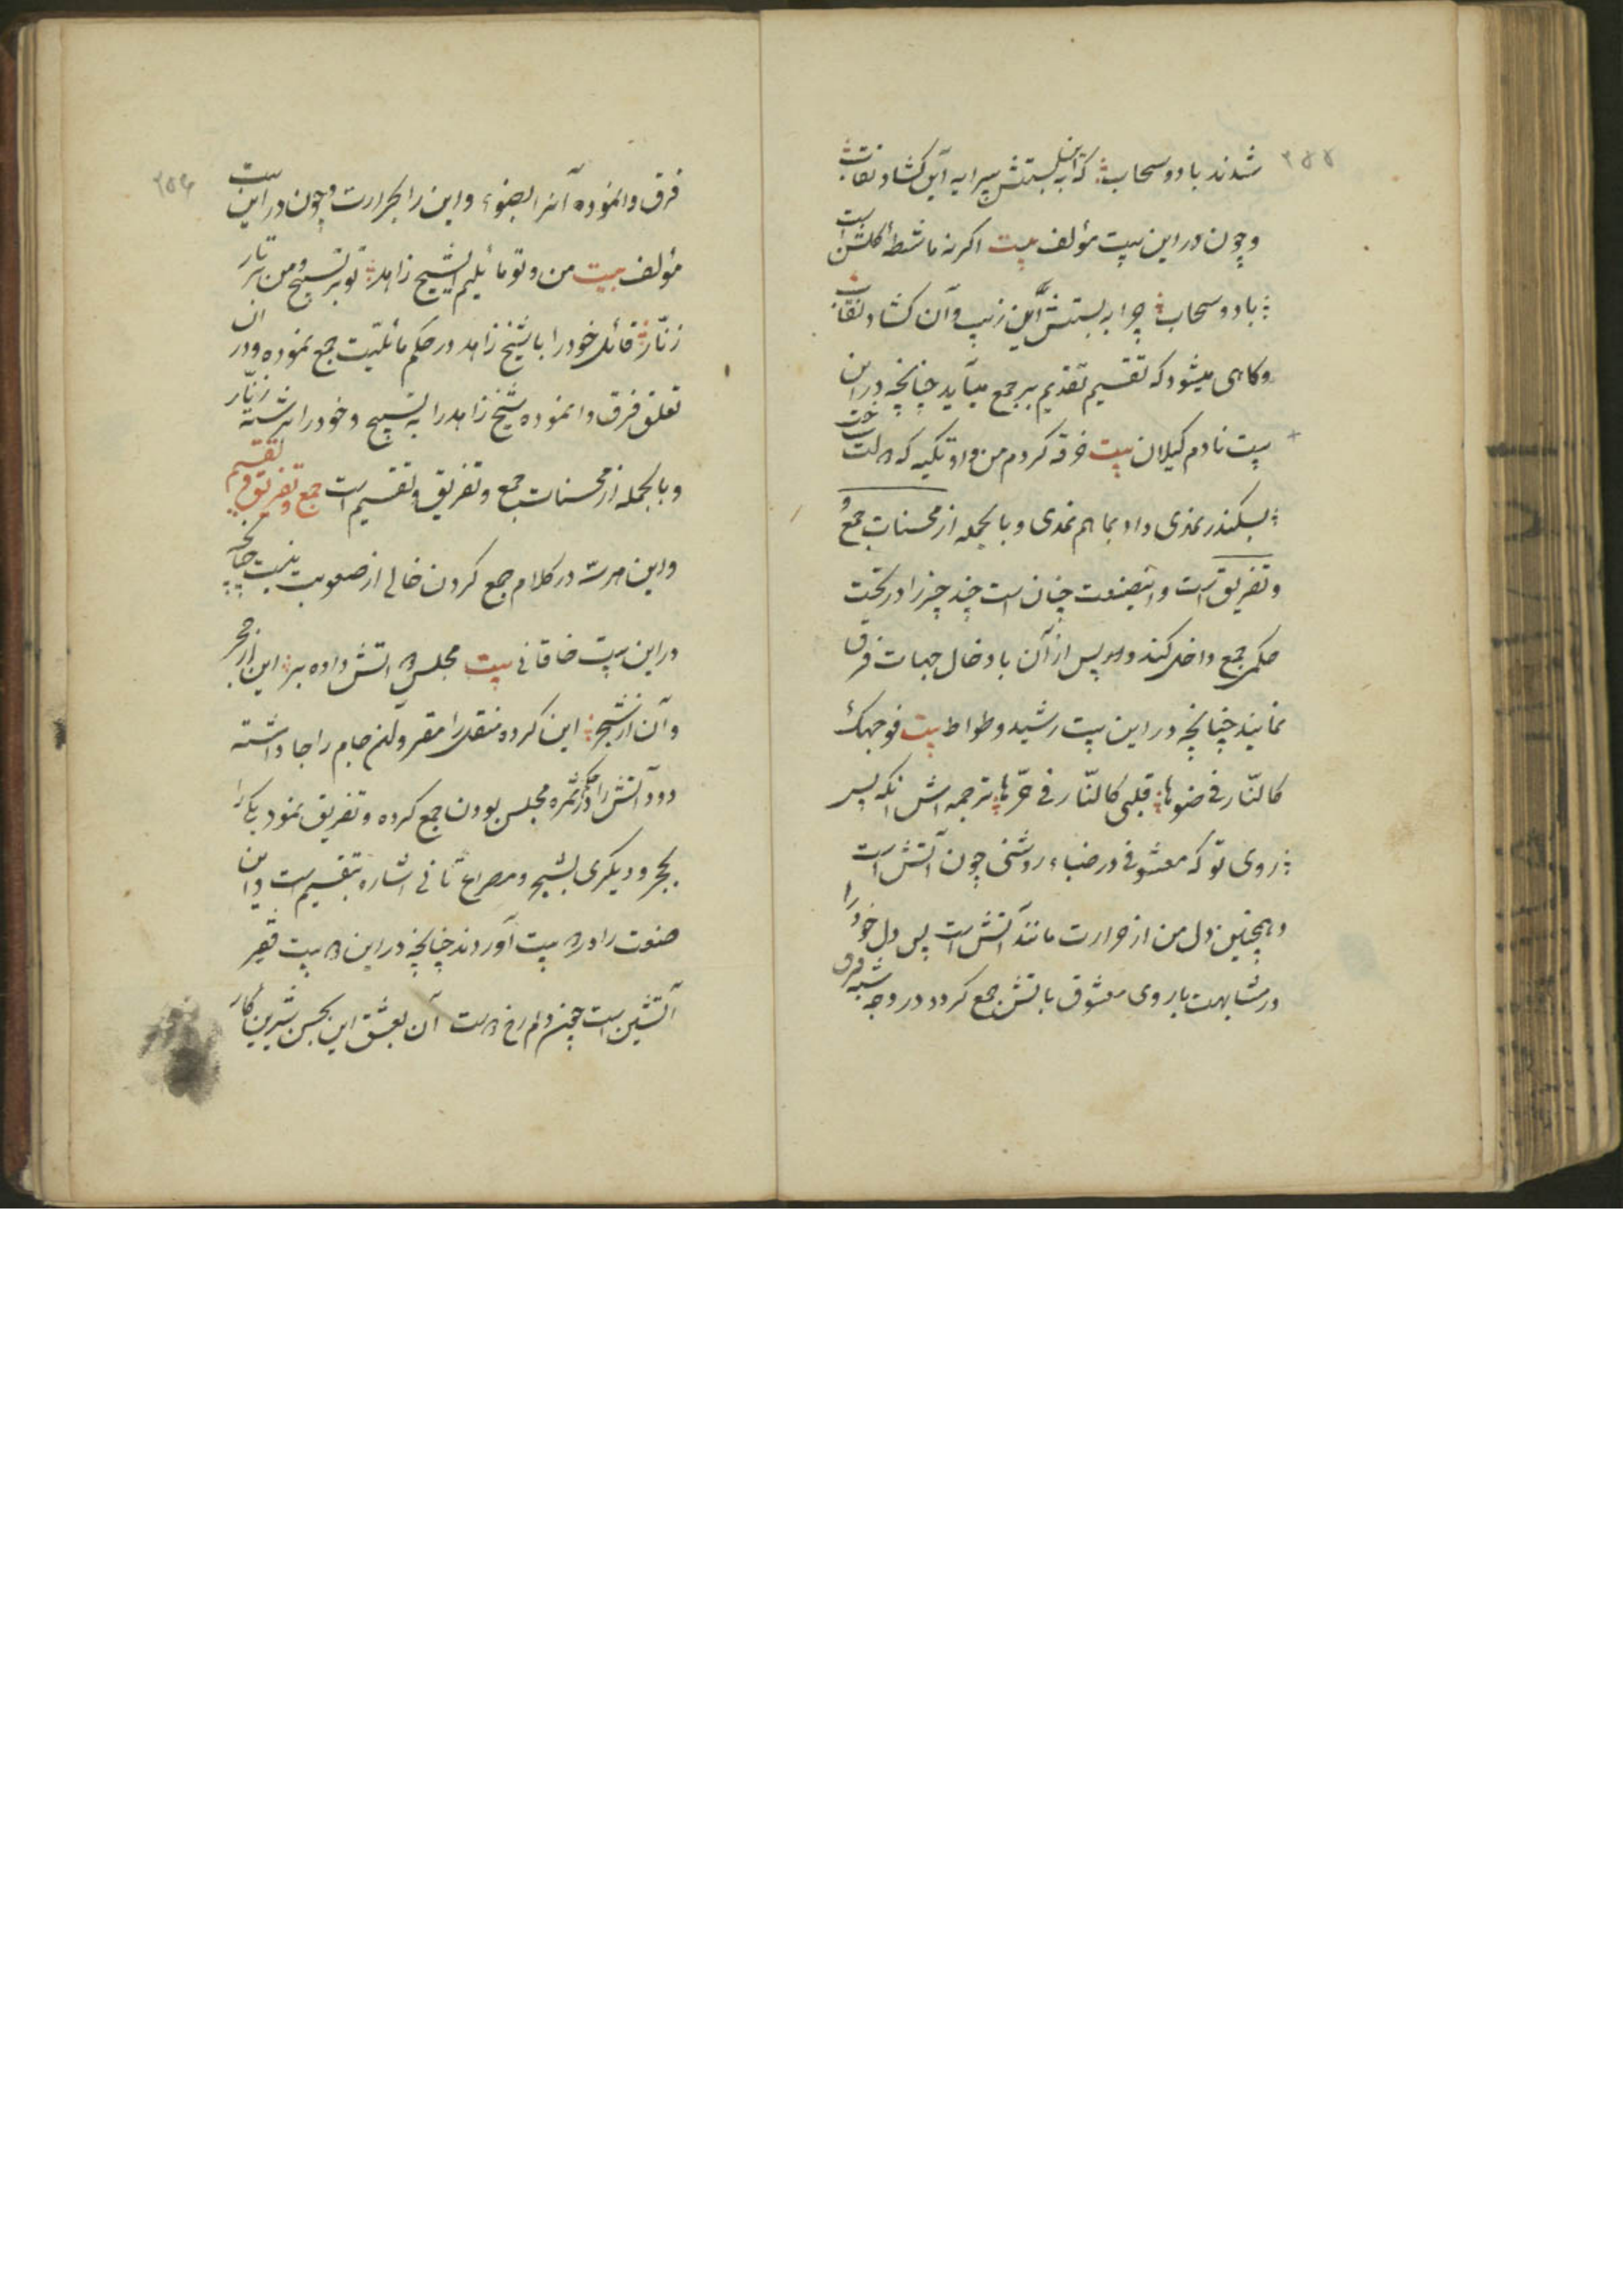 ۲۵۵
شدند باد و سحاب که این به بستنش پیرایه آن کشاد نقاب
و چون در این بیت مؤلف بیت اگر نه ماشطهٔ گلشن است
باد و سحاب چرا به بستنش این زیب و آن کشاد نقاب
و کاهی میشود که تقسیم تقدیم بر جمع میآید چنانچه در این
بیت نادم کیلان بیت فرقه کردم من و او تکیه که
بسکندر نمدی داد بما هم نمدی و بالجمله از محسنات جمع و
و تفریق است و اینصنعت چنان است چند چیز را در تحت
حکمی جمع داخل کنند و پس از آن بادخال جهات فرق
نمایند چنانچه در این بیت رشید وطواط بیت فوجهک
کالنّار فی ضوئها قلبی کالنّار فی حرّها ترجمه اش انکه پس
روی تو که معشوقی در ضیاء روشنی چون آتش است
و همچنین دل من از حرارت مانند آتش است پس دل خود را
در مشابهت با روی معشوق باتش جمع کرد و در وجه شبه فرق
۲۵۶
فرق وانموده آنرا بضوء و این را بحرارت و چون در این بیت
مؤلف بیت من و تو مائلیم ای شیخ زاهد تو بر تسبیح و من بر تار
زنّار قائل خود را با شیخ زاهد در حکم مائلیّت جمع نموده و در ان
تعلق فرق وانموده شیخ زاهد را به تسبیح و خود را برشته زنّار
و بالجمله از محسنات جمع و تفریق و تقسیم است جمع و تفریق و تقسیم
و این هر سه در کلام جمع کردن خالی از صعوبت نیست چنانچه
در این بیت خاقانی بیت مجلس دو آتش داده بر این از حجر
و آن از شجر این کرده منقل را مقر و آن جام را جا داشته
دو آتش را در ثمره مجلس بودن جمع کرده و تفریق نمود یکی را
بحجر و دیکری بشجر و مصراع ثانی اشاره بتقسیم است و این
صنعت را در دو بیت آوردند چنانچه در این دو بیت فقیر
آتشین است چون دلم رخ دوست آن بعشق این بحسن شیرین کار